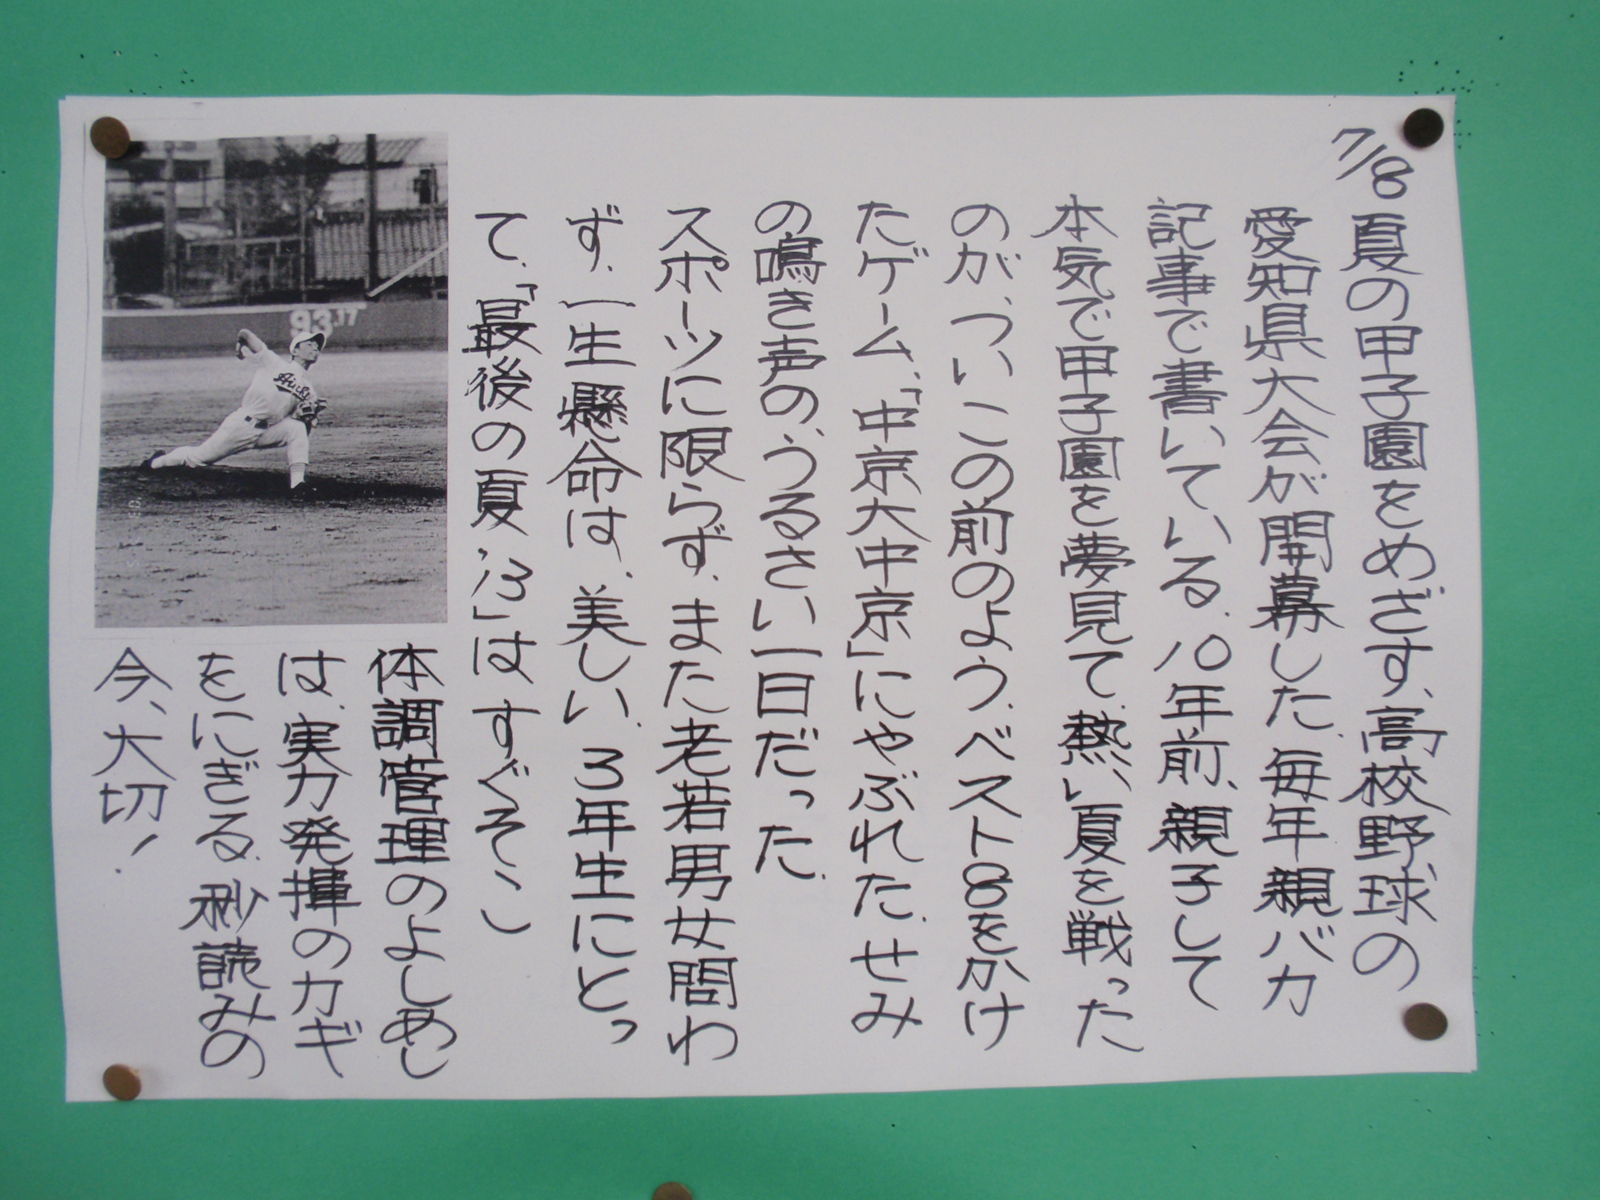 7/8
夏の甲子園をめざす、高校野球の
愛知県大会が開幕した。毎年親バカ
記事で書いている。10年前、親子して
本気で甲子園を夢見て、熱い夏を戦った
のが、ついこの前のよう。ベスト8をかけ
たゲーム、「中京大中京」にやぶれた。せみ
の鳴き声の、うるさい一日だった。
スポーツに限らず、また老若男女問わ
ず、一生懸命は、美しい。3年生にとっ
て、「最後の夏'13」はすぐそこ
体調管理のよしあし
は、実力発揮のカギ
をにぎる。秒読みの
今、大切！
93